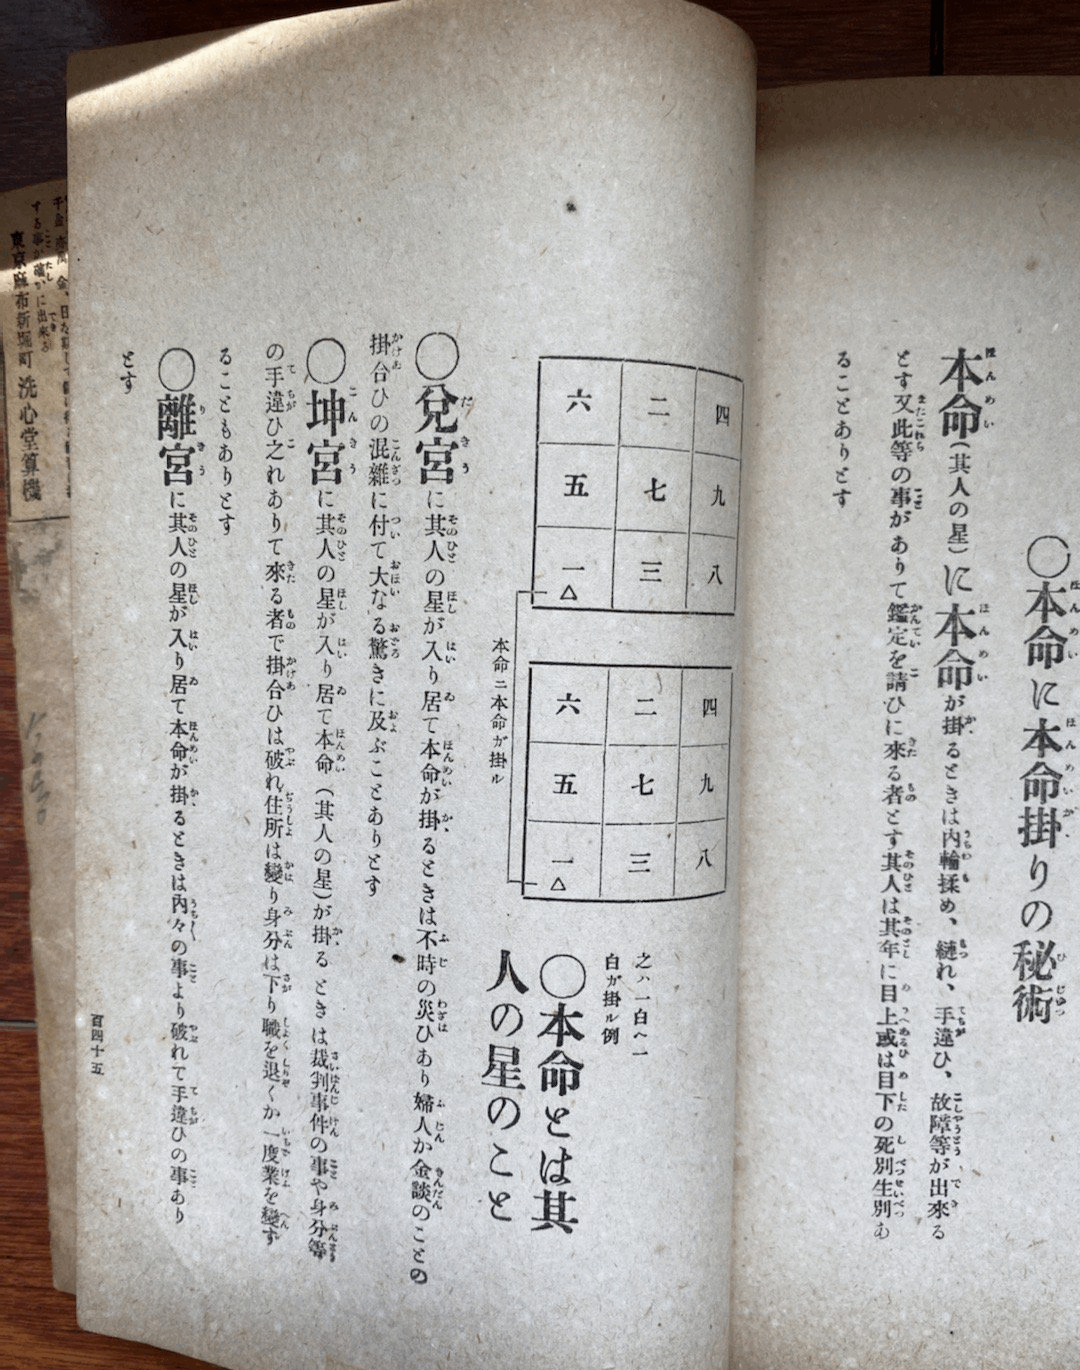 ○本命に本命掛りの秘術
本命(其人の星)に本命が掛るときは内輪揉め、縺れ、手違ひ、故障等が出來る
とす又此等の事がありて鑑定を請ひに來る者とす其人は其年に目上或は目下の死別生別あ
ることありとす
四 九 八
二 七 三
六 五 一△
四 九 八
二 七 三
六 五 一△
本命ニ本命が掛ル
之ハ一白ヘ一
白が掛ル例
○本命とは其
人の星のこと
○兌宮に其人の星が入り居て本命が掛るときは不時の災ひあり婦人か金談のことの
掛合ひの混雜に付て大なる驚きに及ぶことありとす
○坤宮に其人の星が入り居て本命(其人の星)が掛るときは裁判事件の事や身分等
の手違ひ之れありて來る者で掛合ひは破れ住所は變り身分は下り職を退くか一度業を變す
ることもありとす
○離宮に其人の星が入り居て本命が掛るときは内々の事より破れて手違ひの事あり
とす
百四十五
する事が確かに出來る
東京麻布新堀町 洗心堂算機